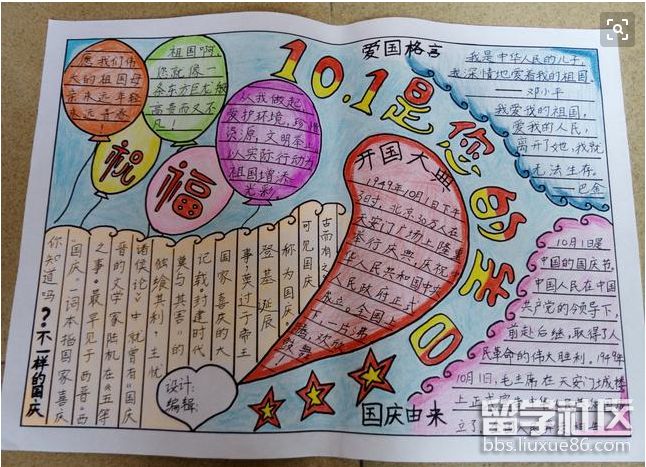 10.1是您的生日
愿我们伟
大的祖国母
亲永远年轻
永远青春!
祖国啊,
您就像一
条东方巨龙
高贵而又不
凡!
从我做起
爱护环境,珍惜
资源,文明茶
以实际行动为
祖国增添
光彩
祝福
爱国格言
我是中华人民的儿子,
我深情地爱着我的祖国。
——邓小平
我爱我的祖国,
爱我的人民,
离开了她,我就
无法生存。
——巴金
开国大典
1949年10月1日下午
3时,北京30万人在
天安门广场上隆重
举行庆典,庆祝
中华人民共和国中央
人民政府正式
成立。全国上
下一片沸
腾,欢欣
鼓舞
10月1日是
中国的国庆节。
中国人民在中国
共产党的领导下,
前赴后继,取得了人
民革命的伟大胜利。1949年
10月1日,毛主席在天安门城楼
国庆由来
?不一样的国庆
你知道吗
“国庆”一词本指国家喜庆
之事,最早见于西晋。西
晋的文学家陆机在《五等
诸侯论》中就曾有“国庆
独飨其利,主忧
莫与其害”的
记载,封建时代
国家喜庆的大
事,莫过于帝王
登基、诞辰
称为国庆。
可见国庆
古而有之
设计:
编辑:
留学社区
bbs.liuxue86.com